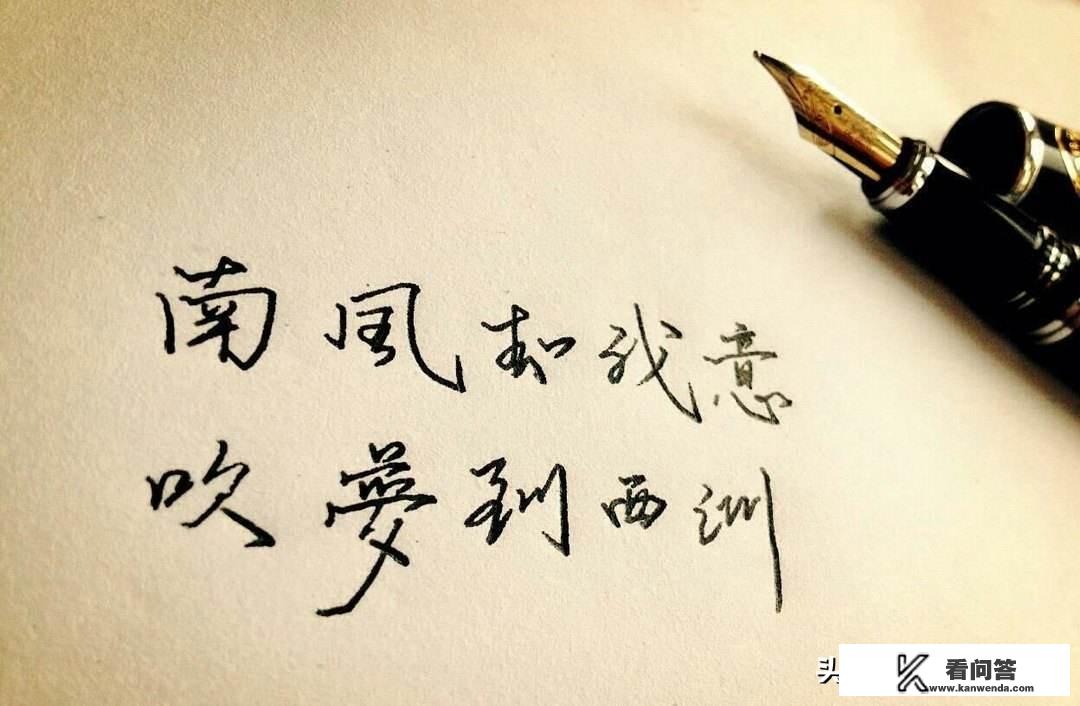 南風知我意
吹夢到西洲
头
看问答
www.kanwenda.com